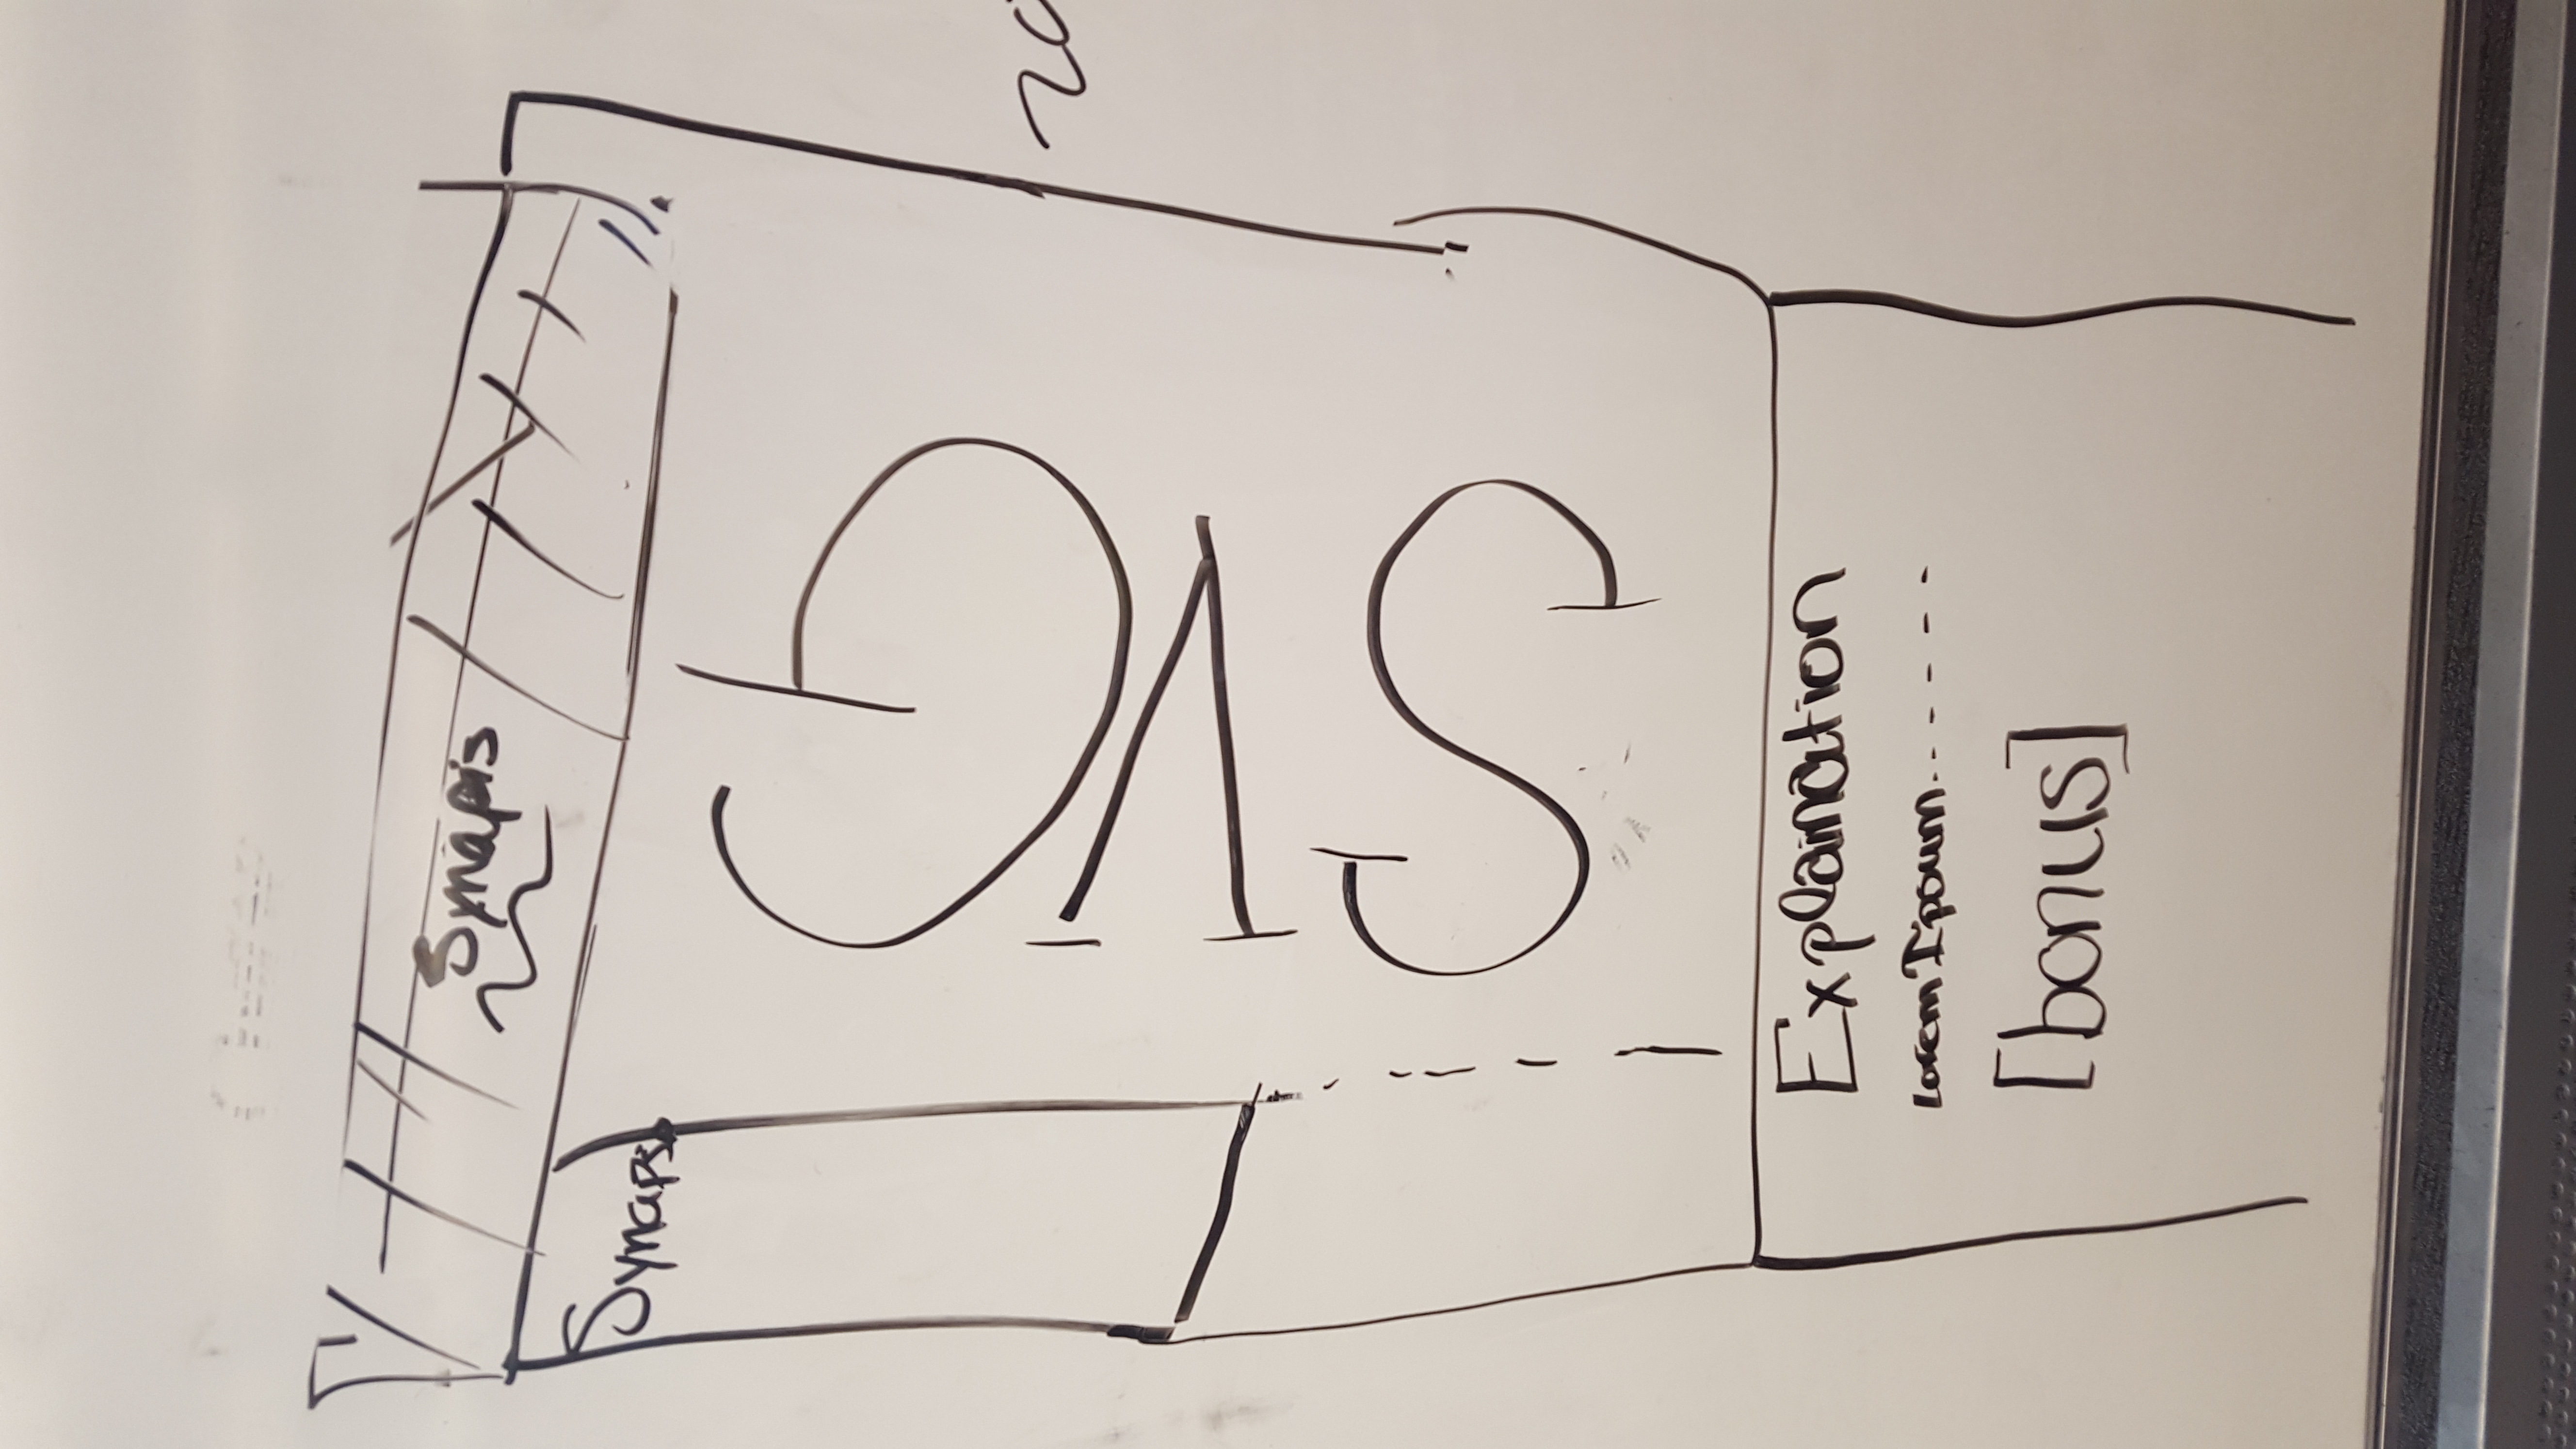 Synapis
Synaps
SVG
Explaination
Lorem Ipsum.. - - - - -
[bonus]